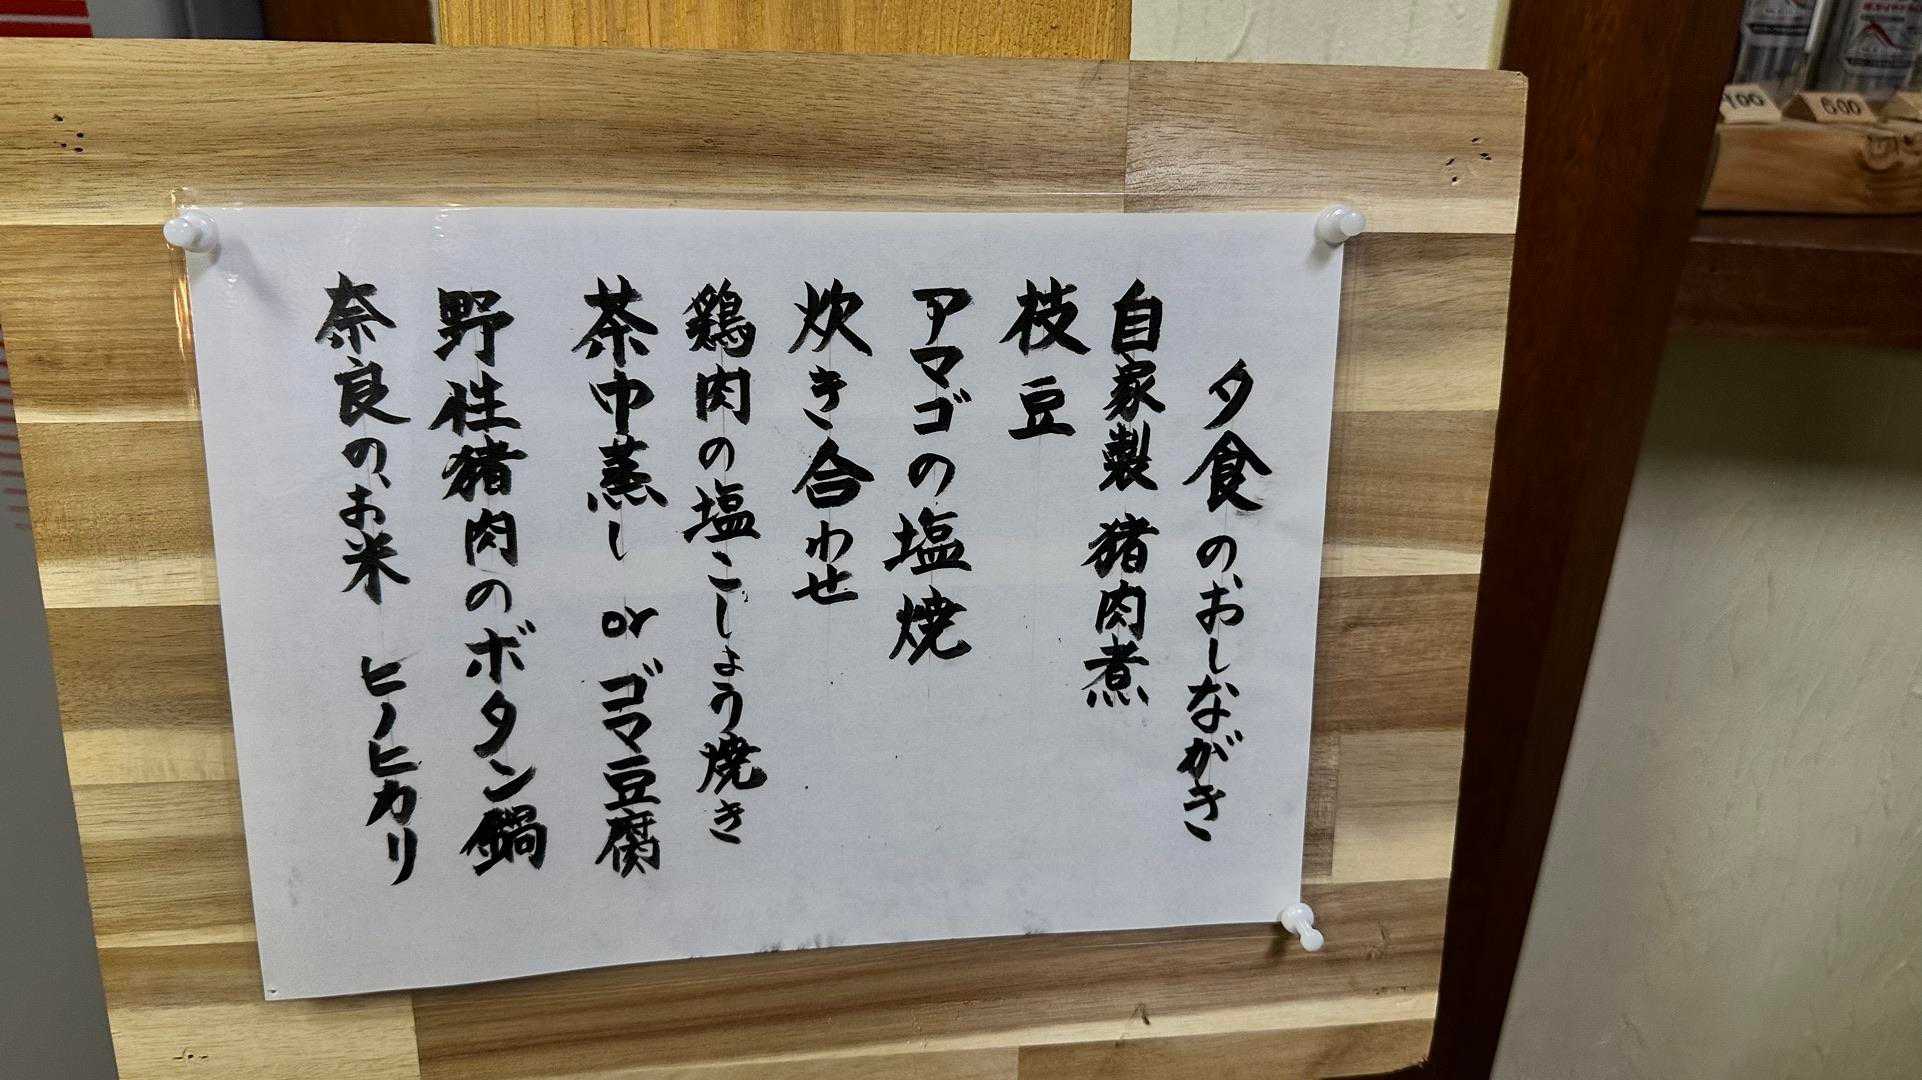 夕食のおしながき
自家製 猪肉煮
枝豆
アマゴの塩焼
炊き合わせ
鶏肉の塩こしょう焼き
茶巾蒸し or ゴマ豆腐
野性猪肉のボタン鍋
奈良の、お米 ヒノヒカリ
100
600